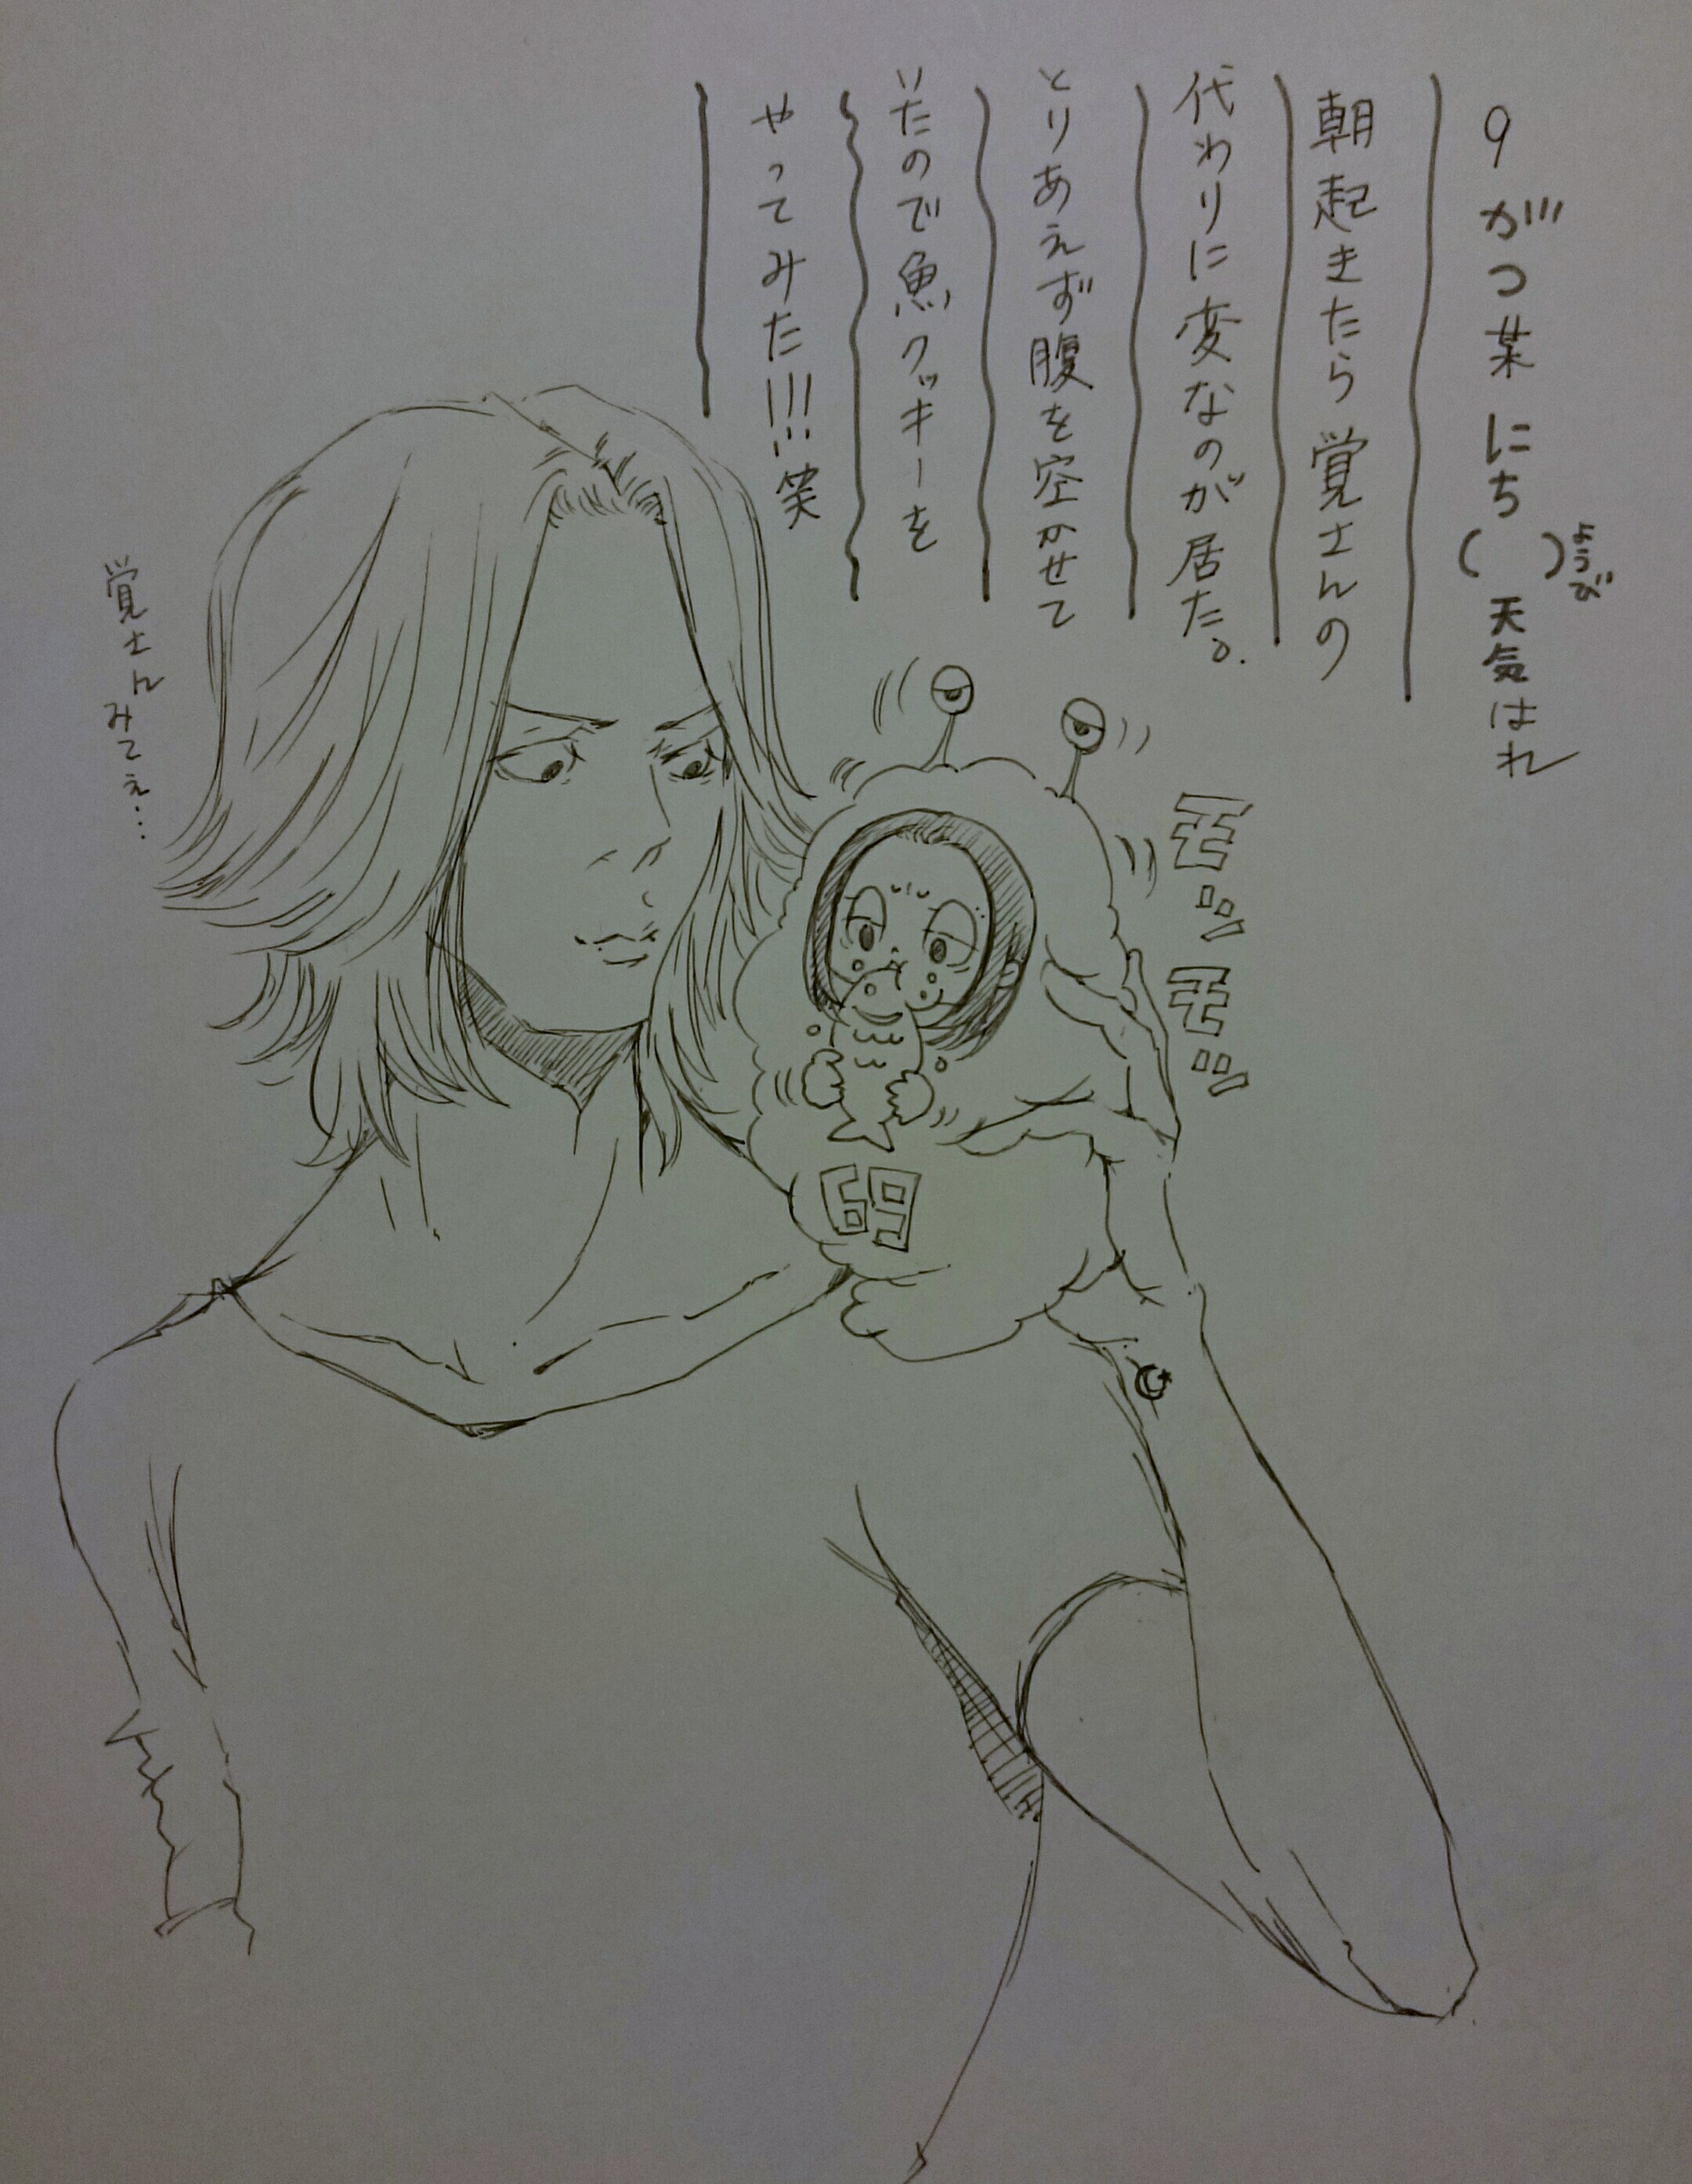 9がつ某にち( )ようび 天気はれ
朝起きたら覚士んの
代わりに変なのが居た。
とりあえず腹を空かせて
いたので魚クッキーを
やってみた!!!笑
モッモッ
69
覚士ん
みてぇ…